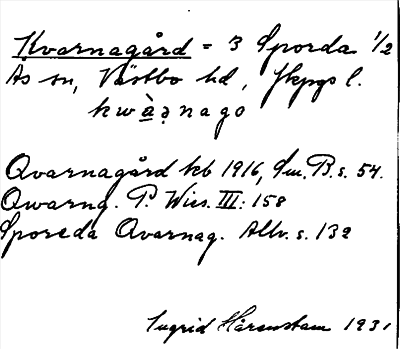 Kvarnagård = 3 Sporda 1/2
Ås sn, Västbo hd, Jkpgs l.
kwàṇago
Qvarnagård kb 1916, Sm. B. s. 54.
Qwarng. P. Wies. III: 158
Sporeda Qvarnag. Allv. s. 132
Ingrid Härenstam 1931